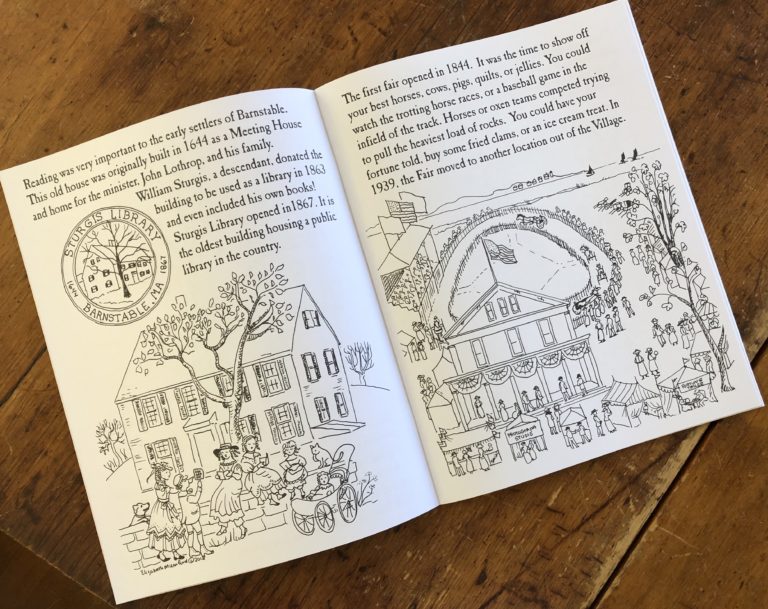 Reading was very important to the early settlers of Barnstable.
This old house was originally built in 1644 as a Meeting House
and home for the minister, John Lothrop, and his family.
William Sturgis, a descendant, donated the
building to be used as a library in 1863
and even included his own books!
Sturgis Library opened in 1867. It is
the oldest building housing a public
library in the country.
STURGIS LIBRARY
1644
1867
BARNSTABLE, MA
The first fair opened in 1844. It was the time to show off
your best horses, cows, pigs, quilts, or jellies. You could
watch the trotting horse races, or a baseball game in the
infield of the track. Horses or oxen teams competed trying
to pull the heaviest load of rocks. You could have your
fortune told, buy some fried clams, or an ice cream treat. In
1939, the Fair moved to another location out of the Village.
STUDIO